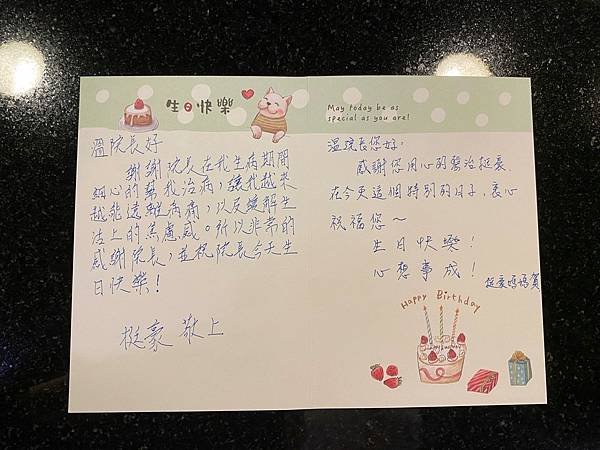 生日快樂
溫院長好
謝謝院長在我生病期間
細心的幫我治病，讓我越來
越能遠離病痛，以及緩解生
活上的焦慮感。所以非常的
感謝院長，並祝院長今天生
日快樂！
挺豪 敬上
May today be as
special as you are!
溫院長您好，
感謝您用心的醫治挺豪、
在今天這個特別的日子、衷心
祝福您～
生日快樂！
心想事成！
挺豪媽媽賀
Happy Birthday